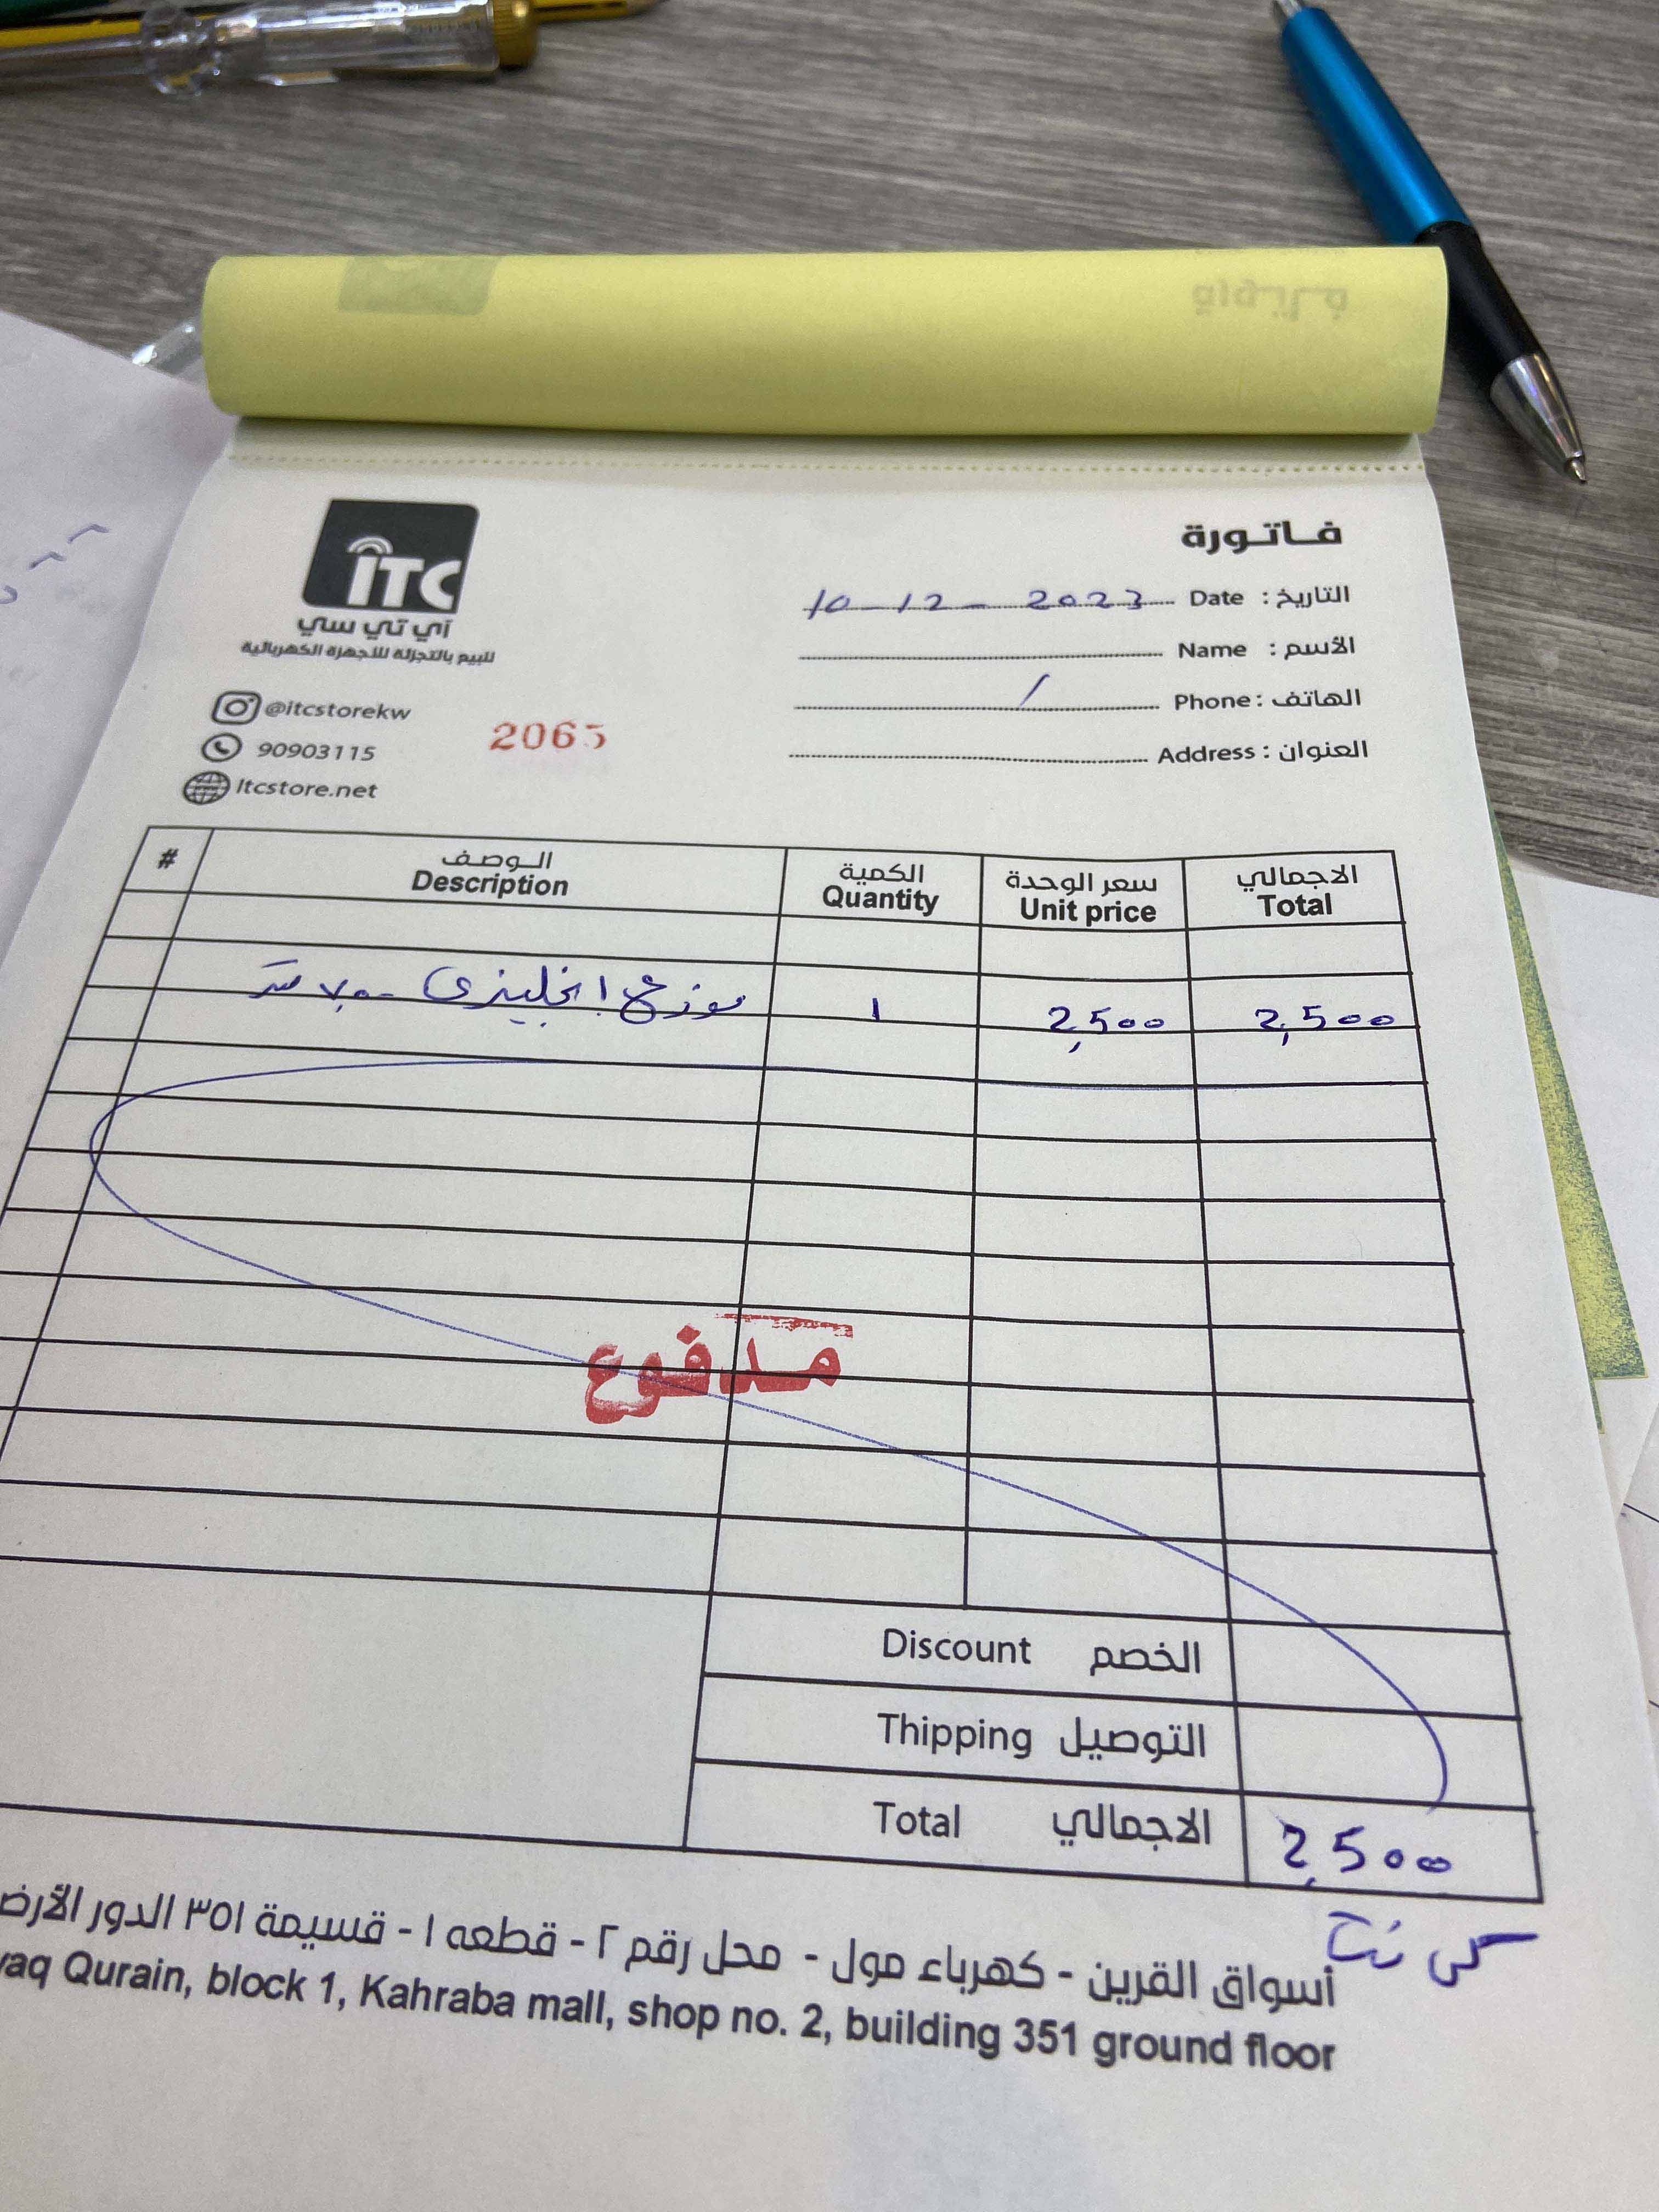 فاتورة
ITC
آي تي سي
للبيع بالتجزئة للأجهزة الكهربائية
@itcstorekw
90903115
Itcstore.net
2065
التاريخ : Date 10-12-2023
الأسم : Name
الهاتف : Phone /
العنوان : Address
# الوصف Description الكمية Quantity سعر الوحدة Unit price الاجمالي Total
موزع انجليزي 1 2,500 2,500
مدفوع
Discount الخصم
Thipping التوصيل
Total الاجمالي 2,500
كي نت
أسواق القرين - كهرباء مول - محل رقم ٢ - قطعه ١ - قسيمة ٣٥١ الدور الأرض
Qurain, block 1, Kahraba mall, shop no. 2, building 351 ground floor